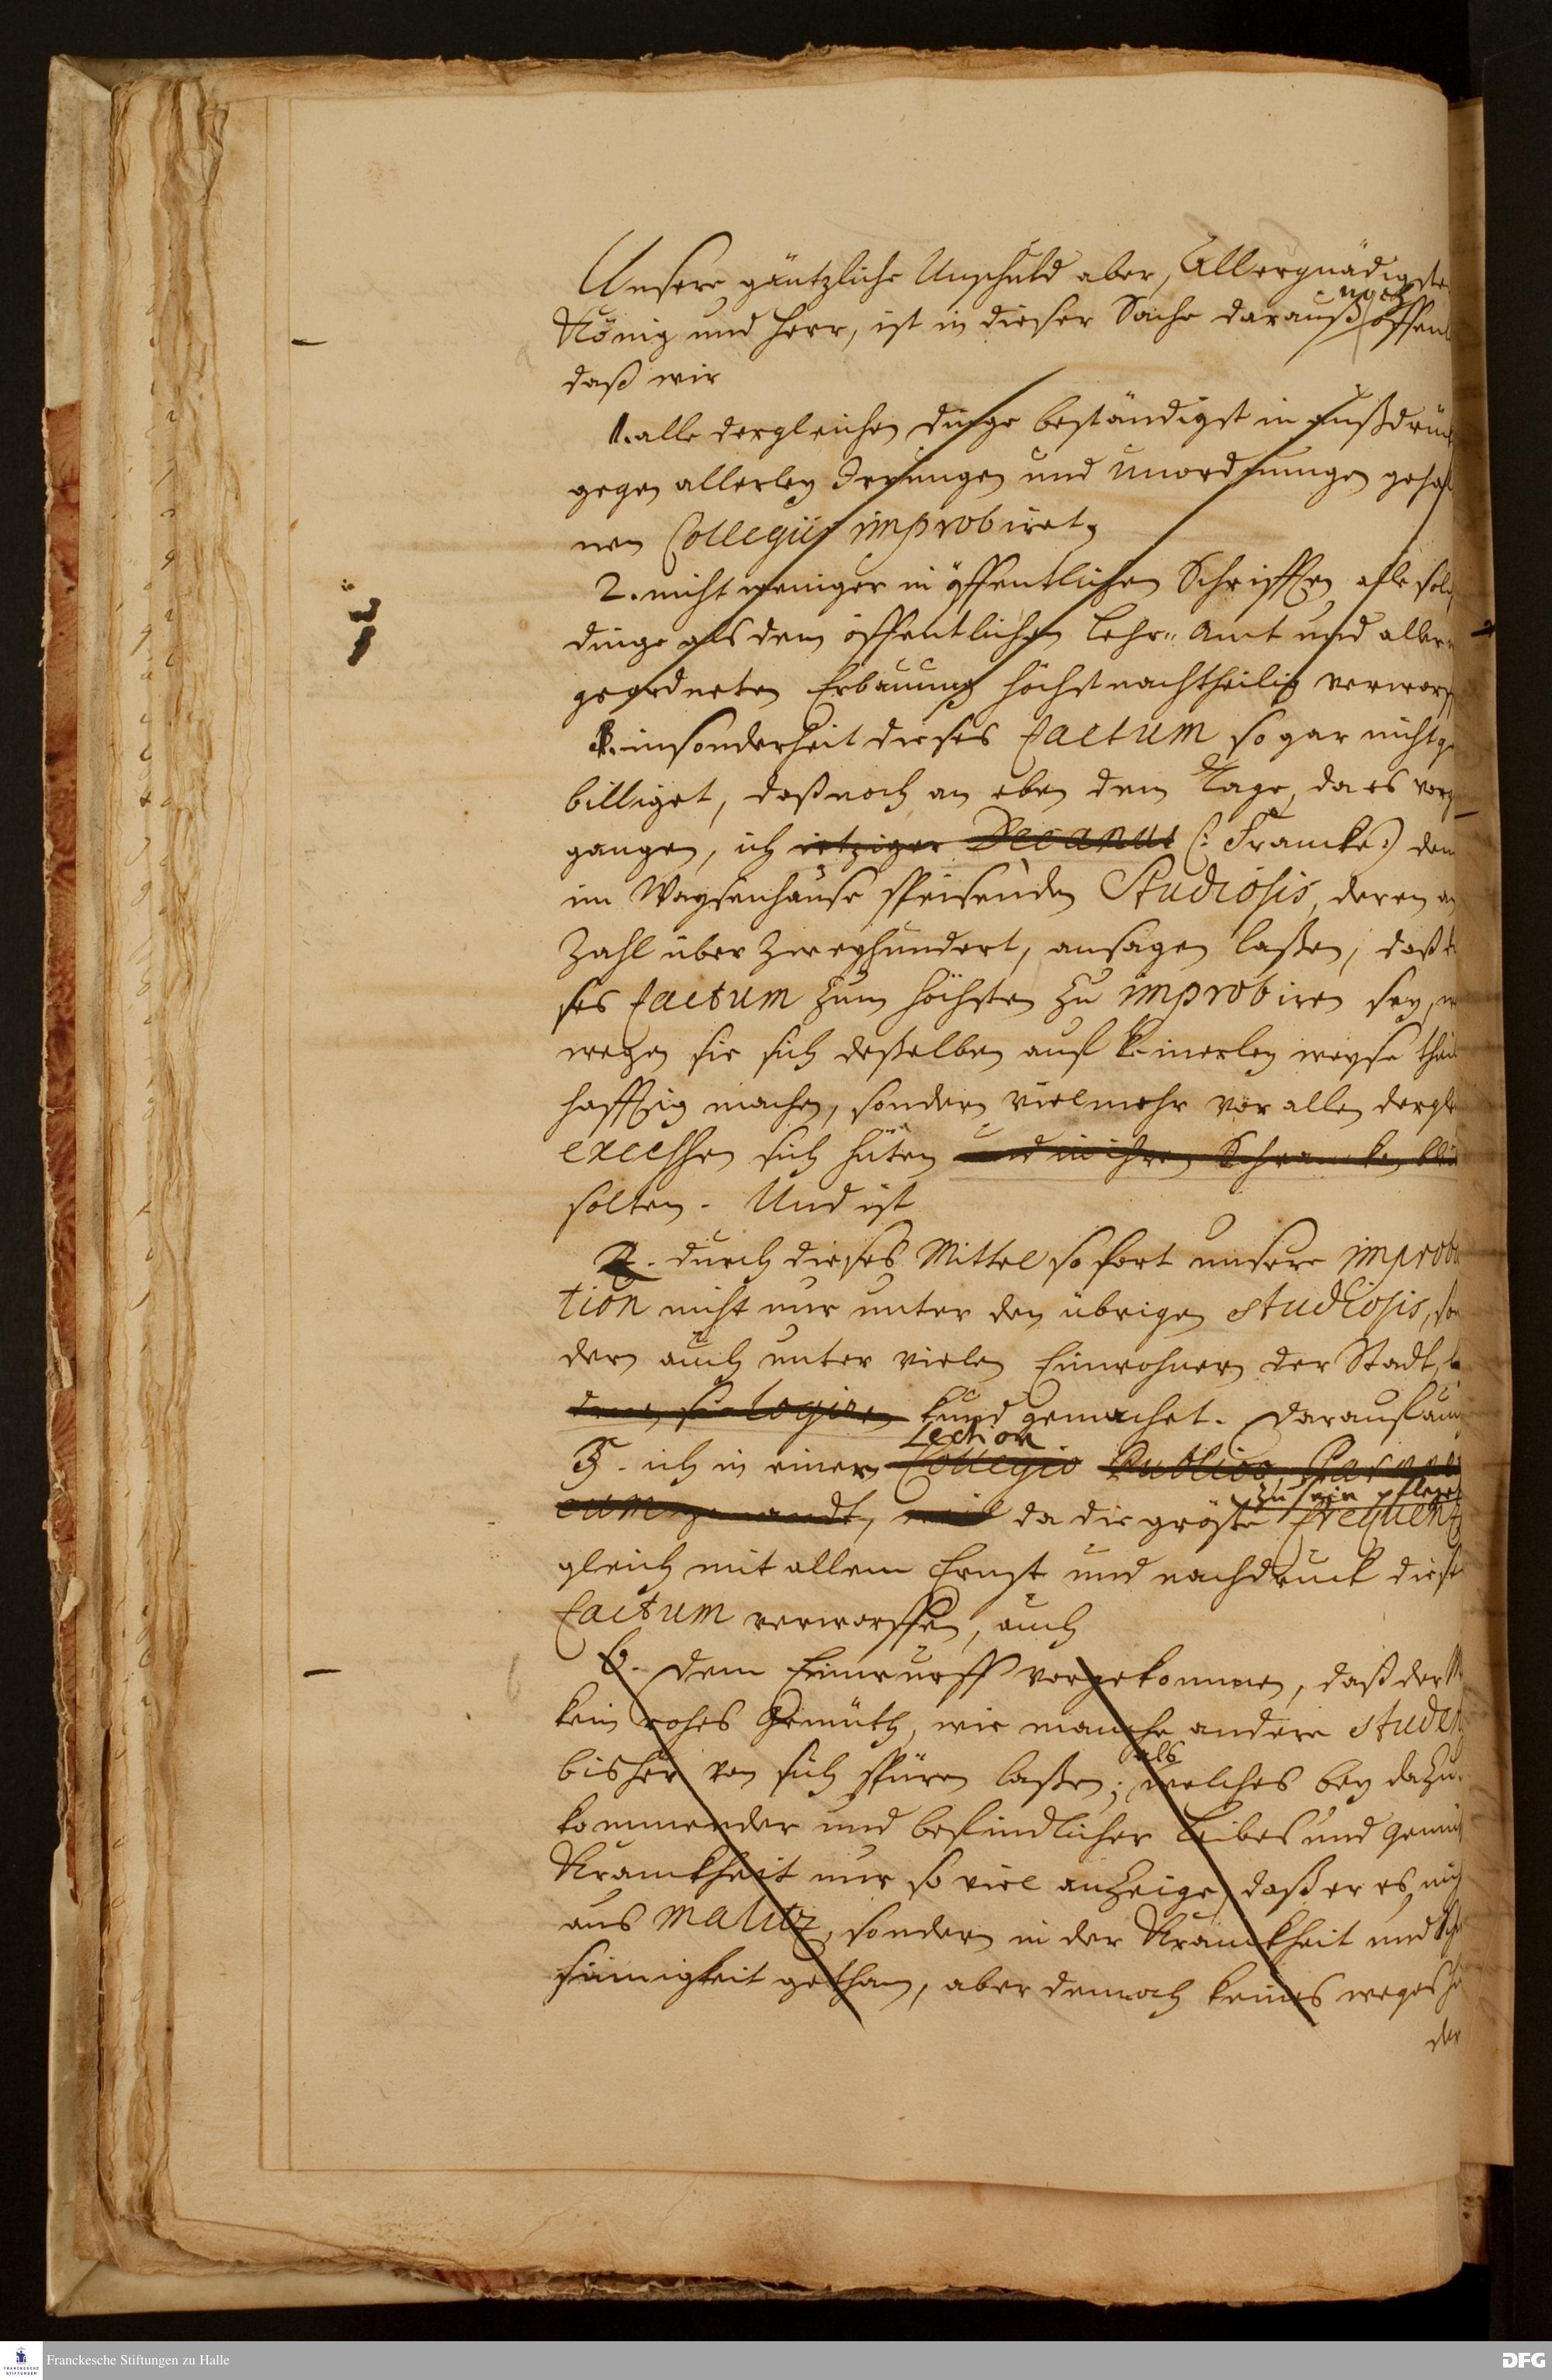 Unsere gäntzliche Unschuld aber, Allergnädigste
noch
König und Herr, ist in dieser Sache darauß offen
daß wir
1. alle dergleichen dinge beständigst in außdrü
gegen allerley Irrungen und Unordnungen gehal
nen Collegiis improbiret,
2. nicht weniger in öffentlichen Schrifften alle sol
dinge als dem öffentlichen Lehr-Amt und aller
geordneten Erbauung höchst nachtheilig verworf
insonderheit dieses factum so gar nicht ge
billiget, daß noch an eben dem Tage, da es vorge
gangen, ich ietziger Decanus (: Francke:) den
im Waysenhause speisenden Studiosis, deren an
Zahl über zweyhundert, ansagen laßen, daß die
ses factum zum höchsten zu improbiren sey, we
wegen sie sich deßelben auf keinerley weyse theil
hafftig machen, sondern vielmehr vor allen dergl
excessen sich hüten und in ihren Schrancken blei
solten. Und ist
2. durch dieses Mittel so fort unsere improba
tion nicht nur unter den übrigen studiosis, son
dern auch unter vielen Einwohnern der Stadt, be
denen sie logiren kund gemachet. Darauf auch
Lection
3. ich in einer Collegio Publico, Paraene
zu sein pfleget
eum genandt, weil da die gröste frequentz
gleich mit allem Ernst und nachdruck dieses
factum verworffen, auch
6. dem Einwurff vorgekommen, daß der M
kein rohes Gemüth, wie manche andere studen
als
bisher von sich spüren laßen; welches bey dazu
kommender und befindlicher Leibes und Gemüths
Kranckheit nur so viel anzeige, daß er es nicht
aus malitz, sondern in der Kranckheit und Sch
sinnigkeit gethan, aber dennoch keines weges he
der
Franckesche Stiftungen zu Halle
FRANCKESCHE STIFTUNGEN
DFG